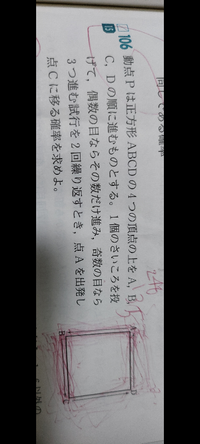 同じである確率
106 動点Pは正方形ABCDの4つの頂点の上をA, B,
15
C, Dの順に進むものとする。1個のさいころを投
げて，偶数の目ならその数だけ進み，奇数の目なら
3つ進む試行を2回繰り返すとき，点Aを出発し
点Cに移る確率を求めよ。